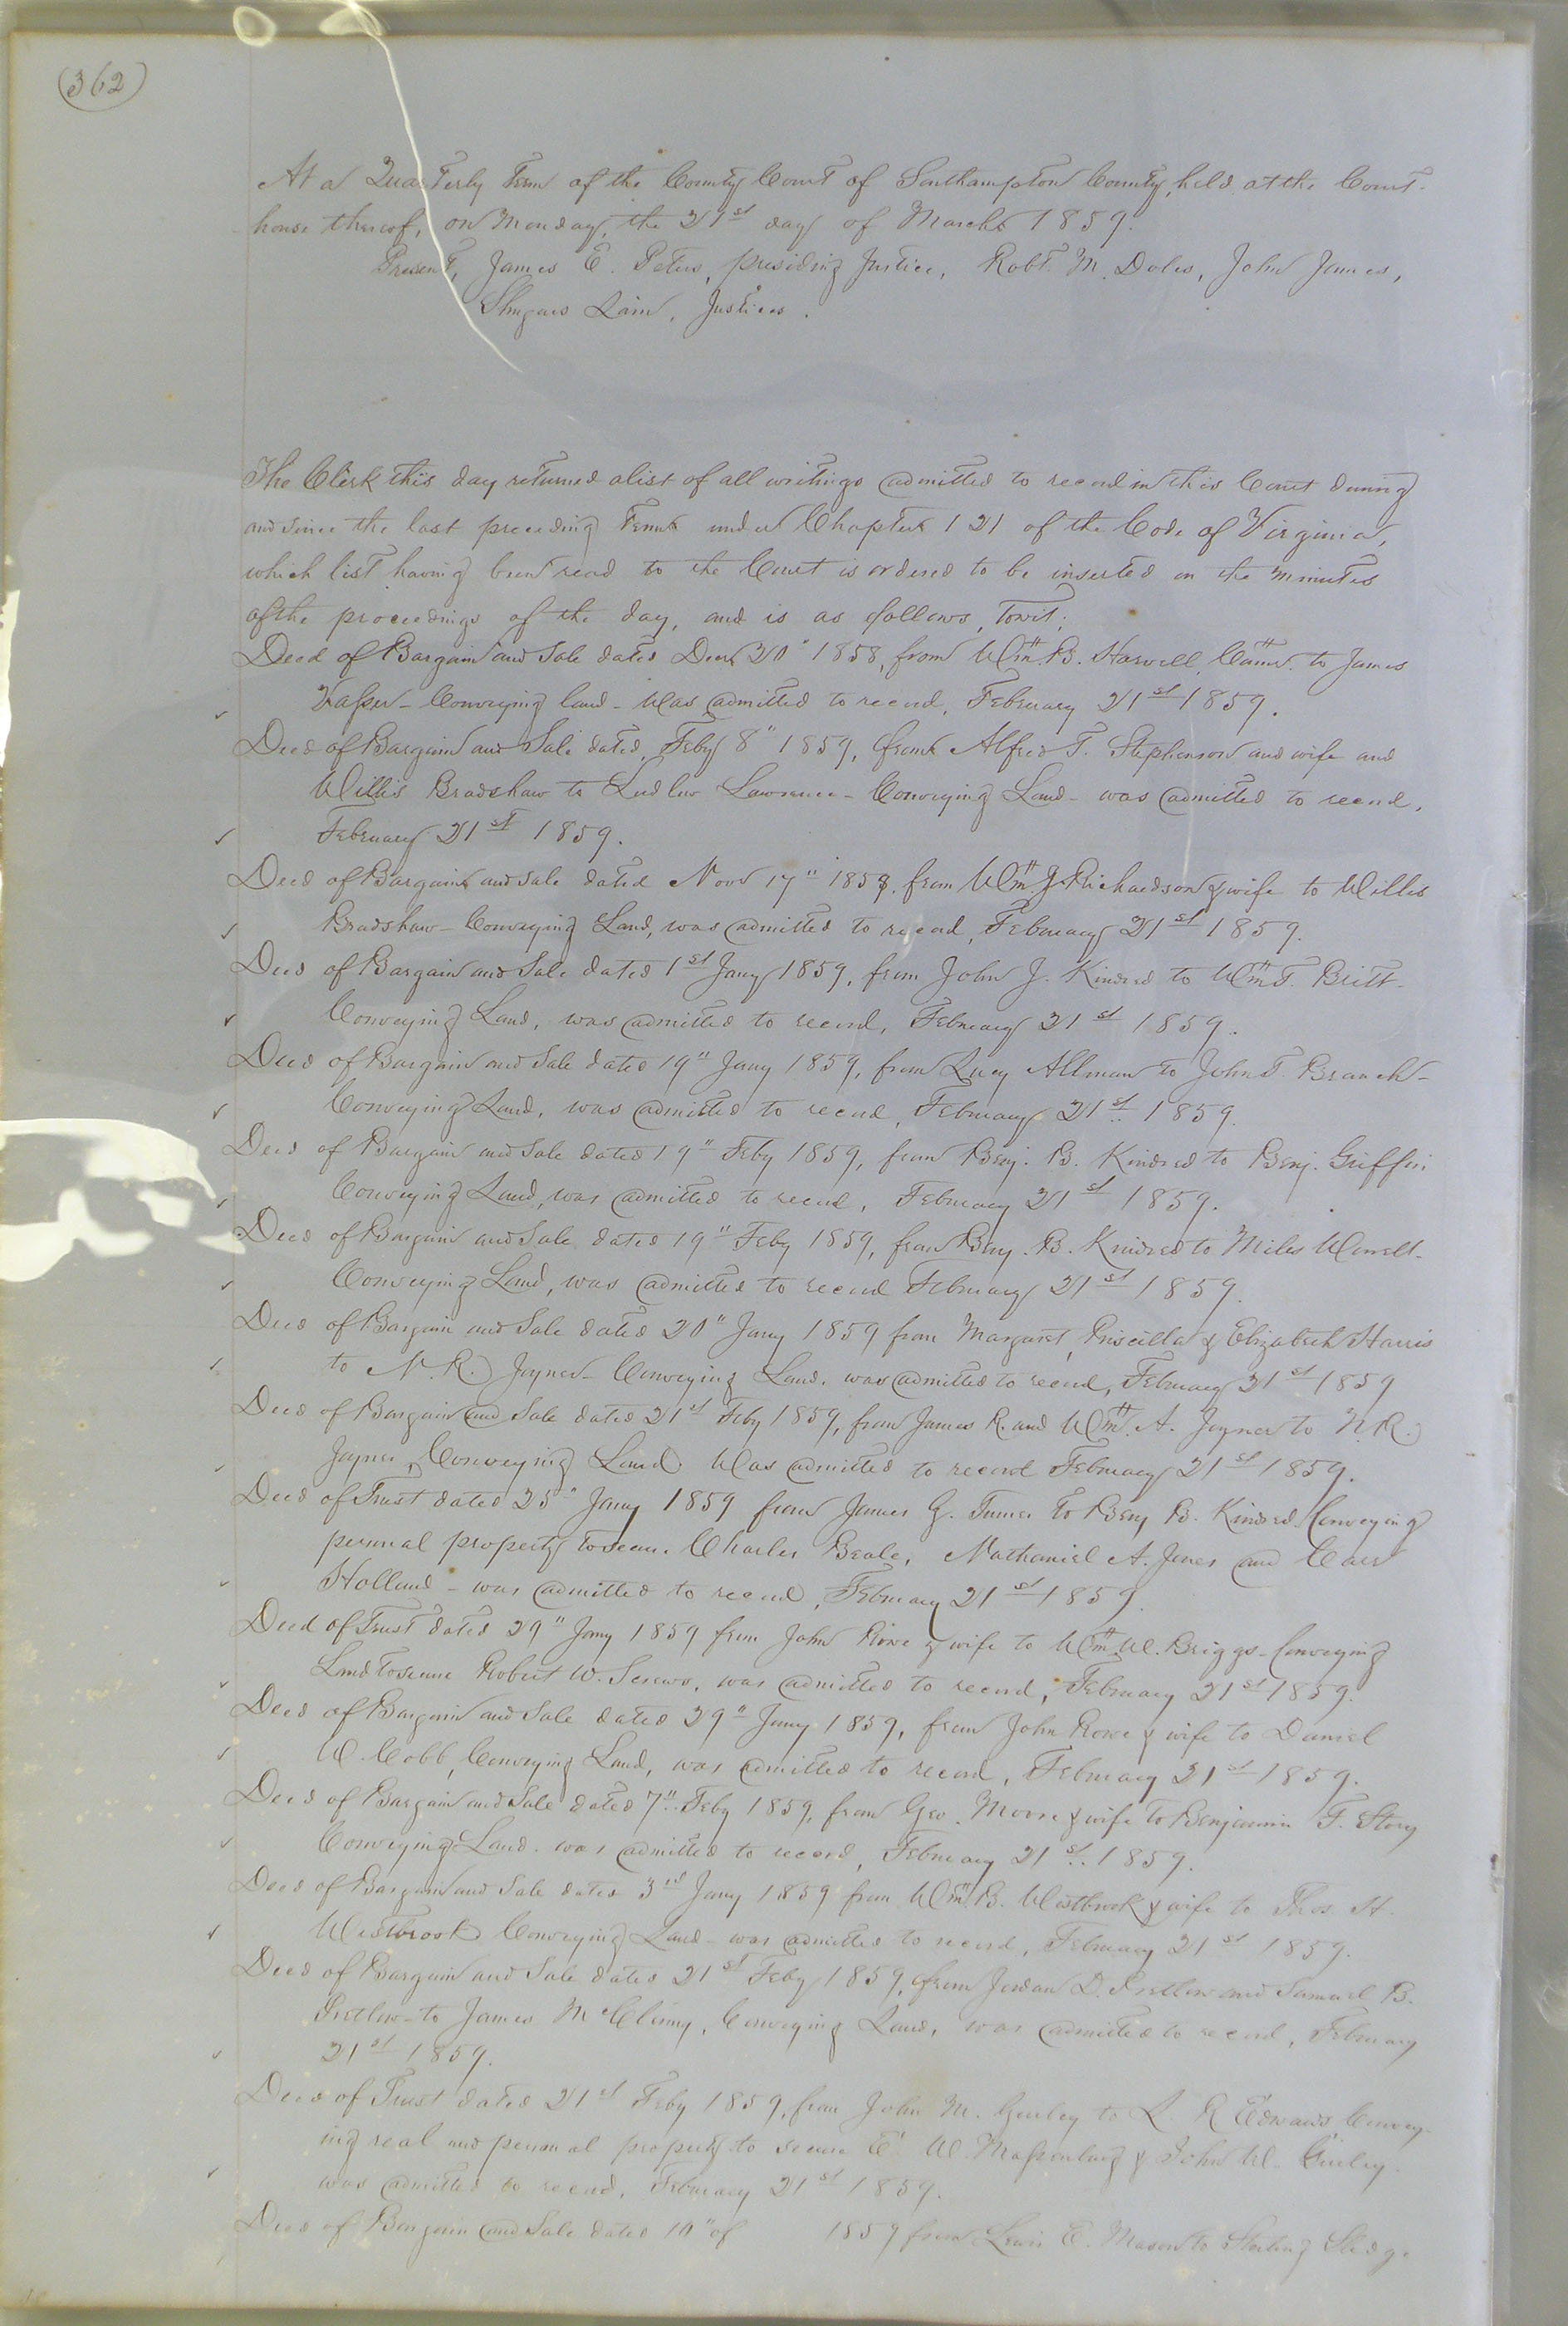 (362)
At a Quarterly Term of the County Court of Southampton County, held at the Court-
house thereof, on Monday, the 21st day of March 1859.
Present, James E. Peters, presiding Justice, Robt. M. Doles, John James,
Shugars Lain, Justices.
The Clerk this day returned a list of all writings admitted to record in this Court during
and since the last preceding Term under Chapter 121 of the Code of Virginia,
which list having been read to the Court is ordered to be inserted in the minutes
of the proceedings of the day, and is as follows, Towit;
Deed of Bargain and Sale dated Decr 20" 1858, from Wm. B. Harvell, to James
Conveying land - Was admitted to record, February 21st 1859.
Deed of Bargain and Sale dated, Feby 8" 1859, from Alfred T. Stephenson and wife and
Willis Bradshaw to Ludlow Lawrence - Conveying Land - was admitted to record,
February 21st 1859.
Deed of Bargain and Sale dated Novr 17" 1858, from Wm. J. Richardson & wife to Willis
Bradshaw - Conveying Land, was admitted to record, February 21st 1859.
Deed of Bargain and Sale dated 1st Jany 1859, from John J. Kindred to Wm. T. Britt -
Conveying Land, was admitted to record, February 21st 1859.
Deed of Bargain and Sale dated 19" Jany 1859, from Lucy Allman to John T. Branch -
Conveying Land, was admitted to record, February 21st 1859.
Deed of Bargain and Sale dated 19" Feby 1859, from Benj. B. Kindred to Benj. Griffin
Conveying Land, was admitted to record, February 21st 1859.
Deed of Bargain and Sale dated 19" Feby 1859, from Benj. B. Kindred to Miles Worrell -
Conveying Land, was admitted to record February 21st 1859.
Deed of Bargain and Sale dated 20" Jany 1859 from Margaret, Priscilla & Elizabeth Harris
to N. R. Joyner - Conveying Land, was admitted to record, February 21st 1859
Deed of Bargain and Sale dated 21st Feby 1859, from James R. and Wm. A. Joyner to N. R.
Joyner, Conveying Land Was admitted to record February 21st 1859.
Deed of Trust dated 25" Jany 1859 from James G. Turner to Benj B. Kindred Conveying
personal property to secure Charles Beale, Nathaniel A. Jones and Carr
Holland - was admitted to record, February 21st 1859
Deed of Trust dated 29" Jany 1859 from John Rowe & wife to Wm. W. Briggs - Conveying
Land to secure Robert W. Screws, was admitted to record, February 21st 1859.
Deed of Bargain and Sale dated 29" Jany 1859, from John Rowe & wife to Daniel
W. Cobb, Conveying Land, was admitted to record, February 21st 1859.
Deed of Bargain and Sale dated 7" Feby 1859, from Geo. Moore & wife to Benjamin F. Story
Conveying Land, was admitted to record, February 21st 1859.
Deed of Bargain and Sale dated 3rd Jany 1859 from Wm. B. Westbrook & wife to Thos. H.
Westbrook Conveying Land - was admitted to record, February 21st 1859.
Deed of Bargain and Sale dated 21st Feby 1859, from Jordan D. Pretlow and Samuel B.
Pretlow - to James McClenny, Conveying Land, was admitted to record, February
21st 1859.
Deed of Trust dated 21st Feby 1859, from John M. Gurley to L. R Edwards Convey-
ing real and personal property to secure E. W. Massenburg & John W. Gurley -
was admitted to record, February 21st 1859.
Deed of Bargain and Sale dated 10" of 1859 from Lewis E. Mason to Sterling Sledge